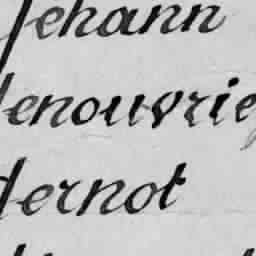 Jehann
lenouvrie
dernot